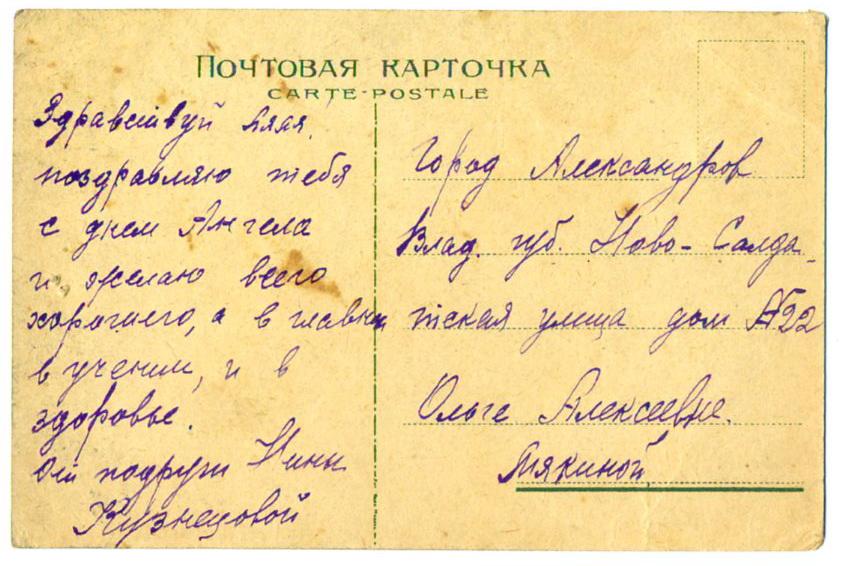 ПОЧТОВАЯ КАРТОЧКА
CARTE-POSTALE
Здравствуй Ляля,
поздравляю тебя
с днем Ангела
и желаю всего
хорошего, а в главни
в учении, и в
здоровье.
От подруги Нины
Кузнецовой
Город Александров
Влад. губ. Ново-Салда-
тская улица дом №22
Ольге Алексеевне.
Мякиной